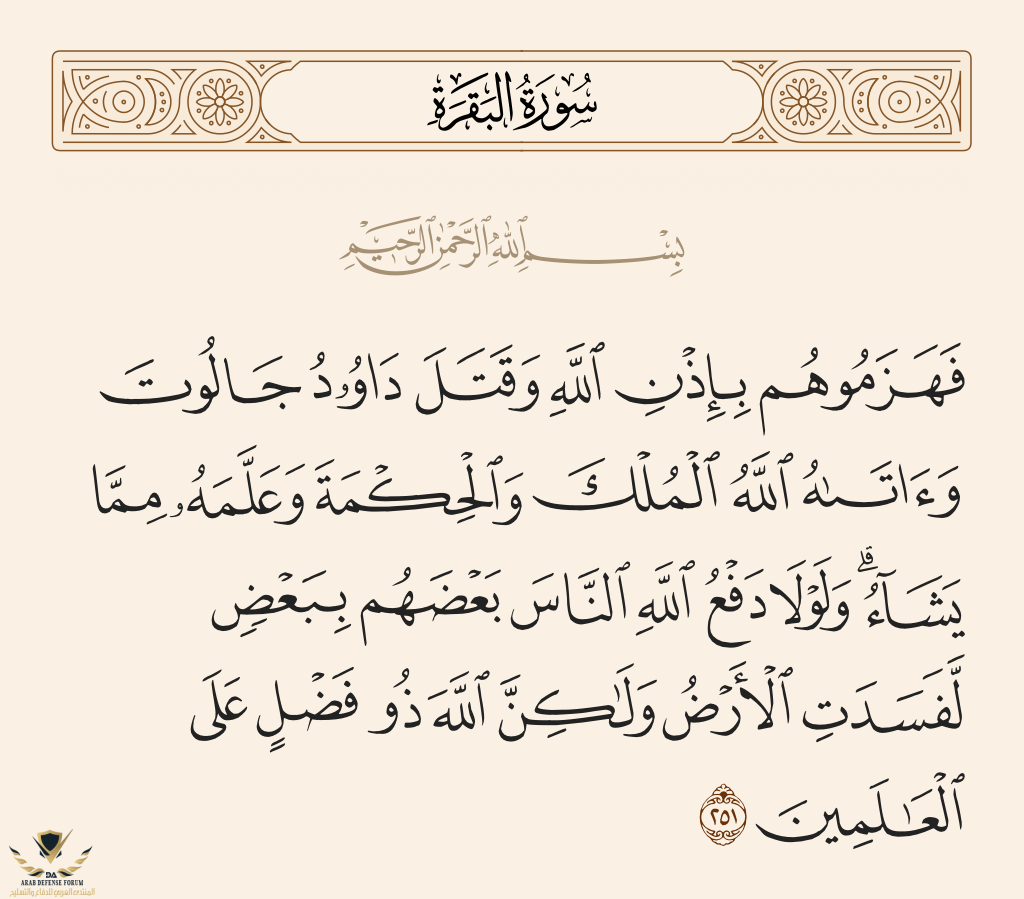 سُورَةُ البَقَرَةِ
بِسْمِ ٱللَّهِ ٱلرَّحْمَٰنِ ٱلرَّحِيمِ
فَهَزَمُوهُم بِإِذْنِ ٱللَّهِ وَقَتَلَ دَاوُۥدُ جَالُوتَ
وَءَاتَىٰهُ ٱللَّهُ ٱلْمُلْكَ وَٱلْحِكْمَةَ وَعَلَّمَهُۥ مِمَّا
يَشَآءُ ۗ وَلَوْلَا دَفْعُ ٱللَّهِ ٱلنَّاسَ بَعْضَهُم بِبَعْضٍ
لَّفَسَدَتِ ٱلْأَرْضُ وَلَٰكِنَّ ٱللَّهَ ذُو فَضْلٍ عَلَى
ٱلْعَٰلَمِينَ ٢٥١
DA
ARAB DEFENSE FORUM
المنتدى العربي للدفاع والتسليح